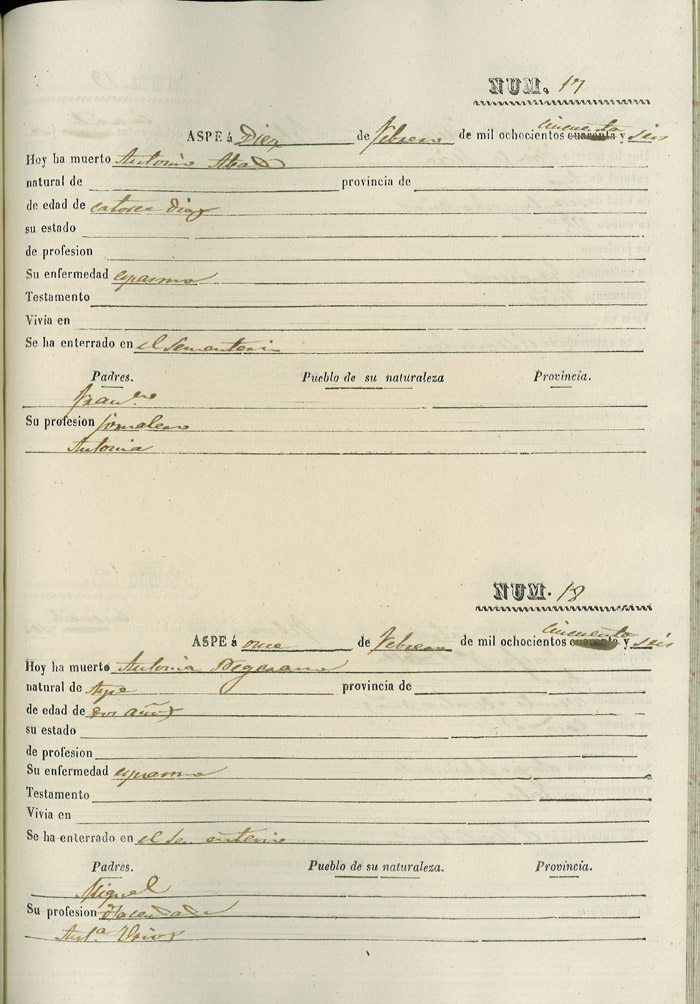 NUM. 17
ASPE á Diez de Febrero de mil ochocientos cincuenta cuarenta y seis
Hoy ha muerto Antonio Abad
natural de provincia de
de edad de catorce dias
su estado
de profesion
Su enfermedad espasmo
Testamento
Vivía en
Se ha enterrado en el Sementerio
Padres. Pueblo de su naturaleza Provincia.
Fran.co
Su profesion Jornalero
Antonia
NUM. 18
ASPE á once de Febrero de mil ochocientos cincuenta cuarenta y seis
Hoy ha muerto Antonia
natural de Aspe provincia de
de edad de dos años
su estado
de profesion
Su enfermedad espasmo
Testamento
Vivia en
Se ha enterrado en el Sementerio
Padres. Pueblo de su naturaleza. Provincia.
Miguel
Su profesion
Ant.a